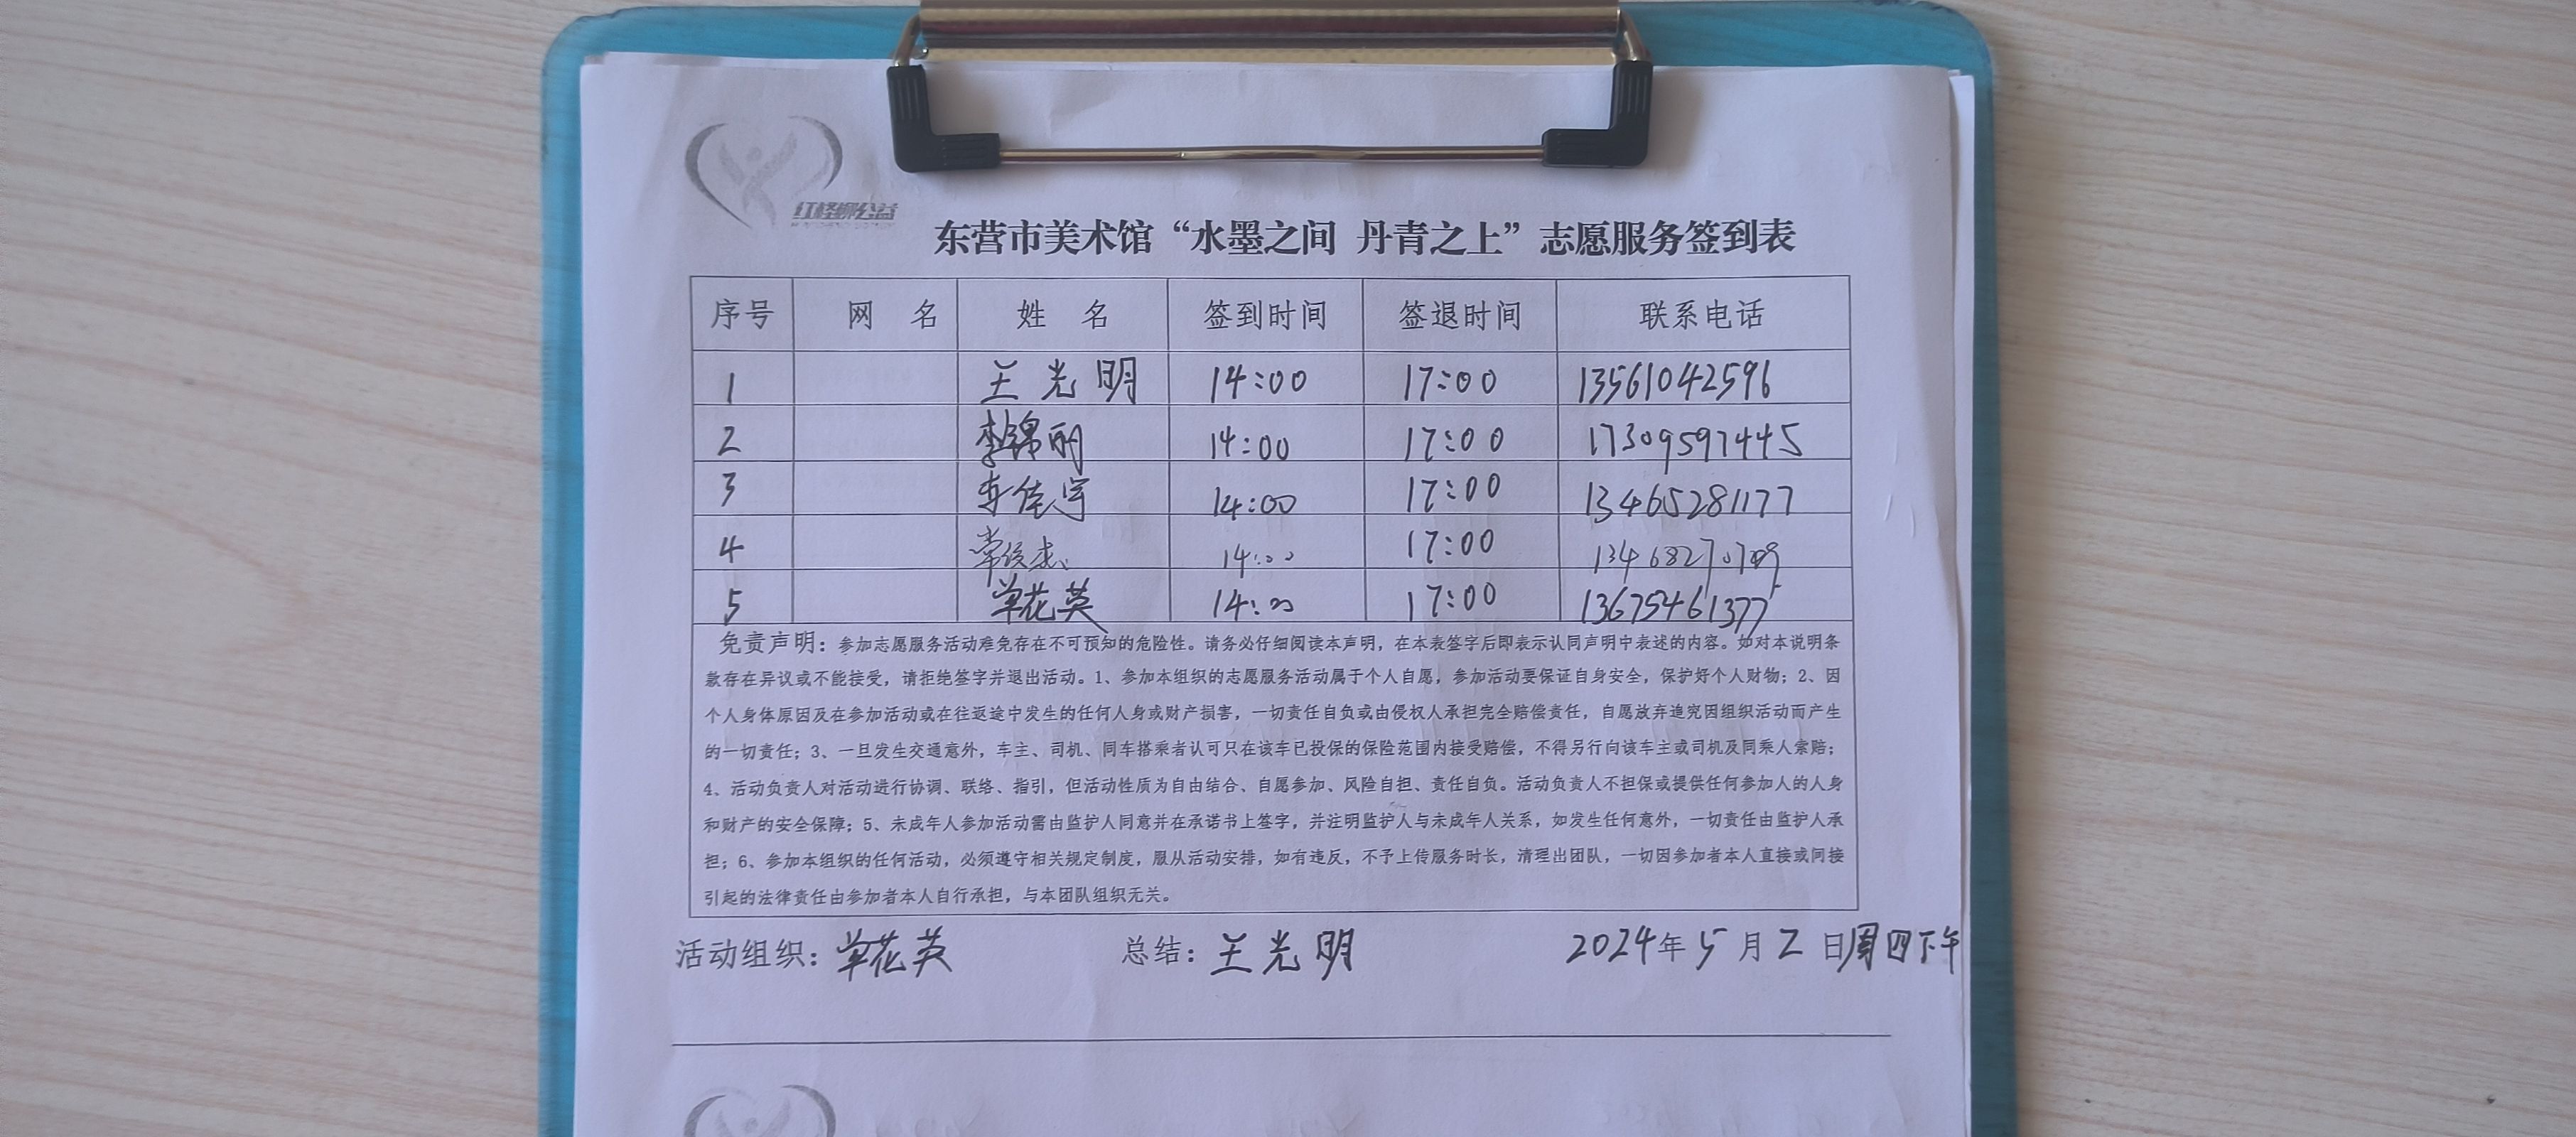 红柽柳公益
东营市美术馆“水墨之间 丹青之上”志愿服务签到表
序号 网 名 姓 名 签到时间 签退时间 联系电话
1 王光明 14:00 17:00 13561042596
2 李锦丽 14:00 17:00 17309597445
3 李佳宇 14:00 17:00 13465281177
4 14:00 17:00
5 单花英 14:00 17:00 13675461377
免责声明：参加志愿服务活动难免存在不可预知的危险性。请务必仔细阅读本声明，在本表签字后即表示认同声明中表述的内容。如对本说明条
款存在异议或不能接受，请拒绝签字并退出活动。1、参加本组织的志愿服务活动属于个人自愿，参加活动要保证自身安全，保护好个人财物；2、因
个人身体原因及在参加活动或在往返途中发生的任何人身或财产损害，一切责任自负或由侵权人承担完全赔偿责任，自愿放弃追究因组织活动而产生
的一切责任；3、一旦发生交通意外，车主、司机、同车搭乘者认可只在该车已投保的保险范围内接受赔偿，不得另行向该车主或司机及同乘人索赔；
4、活动负责人对活动进行协调、联络、指引，但活动性质为自由结合、自愿参加、风险自担、责任自负。活动负责人不担保或提供任何参加人的人身
和财产的安全保障；5、未成年人参加活动需由监护人同意并在承诺书上签字，并注明监护人与未成年人关系，如发生任何意外，一切责任由监护人承
担；6、参加本组织的任何活动，必须遵守相关规定制度，服从活动安排，如有违反，不予上传服务时长，清理出团队，一切因参加者本人直接或间接
引起的法律责任由参加者本人自行承担，与本团队组织无关。
活动组织：单花英 总结：王光明 2024年5月2日周四下午